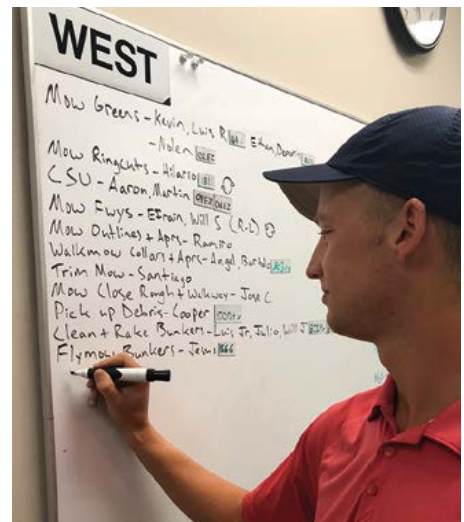 WEST
Mow Greens - Kevin, Luis R Ethan,
- Nolen
Mow Ringcuts - Hilario
CSU - Aaron, Martin
Mow Fwys - Efrain, Will S (R-L)
Mow Outlines + Aprs - Ramiro
Walkmow Collars + Aprs - Angel,
Trim Mow - Santiago
Mow Close Rough + Walkway - Jose C
Pick up Debris - Cooper
Clean + Rake Bunkers - Luis Jr, Julio, Will J
Flymow Bunkers - Jesus